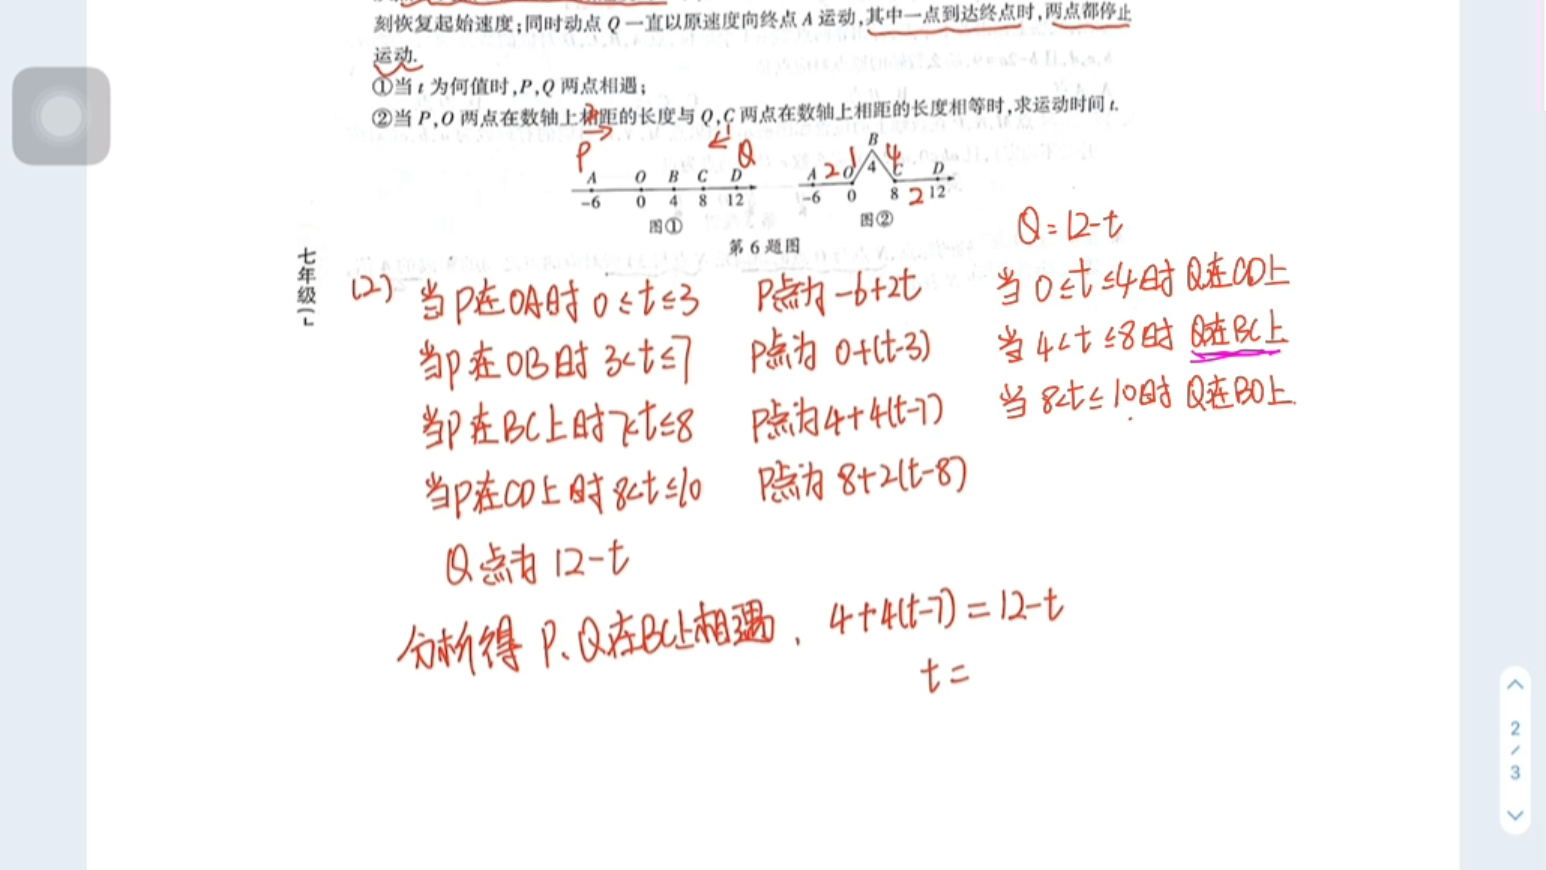 刻恢复起始速度;同时动点 Q 一直以原速度向终点 A 运动,其中一点到达终点时,两点都停止
运动.
①当 t 为何值时,P,Q 两点相遇;
②当 P,O 两点在数轴上相距的长度与 Q,C 两点在数轴上相距的长度相等时,求运动时间 t.
P Q
A O B C D
-6 0 4 8 12
图①
B
1 4 4
A 2 O C D
-6 0 8 2 12
图②
第 6 题图
七年级(
Q=12-t
(2) 当P在OA时 0≤t≤3 P点为 -6+2t 当 0≤t≤4时 Q在CD上
当P在OB时 3<t≤7 P点为 0+(t-3) 当 4<t≤8时 Q在BC上
当P在BC上时7<t≤8 P点为4+4(t-7) 当 8<t≤10时 Q在BO上.
当P在CD上时 8<t≤10 P点为 8+2(t-8)
Q点为 12-t
分析得 P、Q在BC上相遇, 4+4(t-7)=12-t
t=
2
/
3